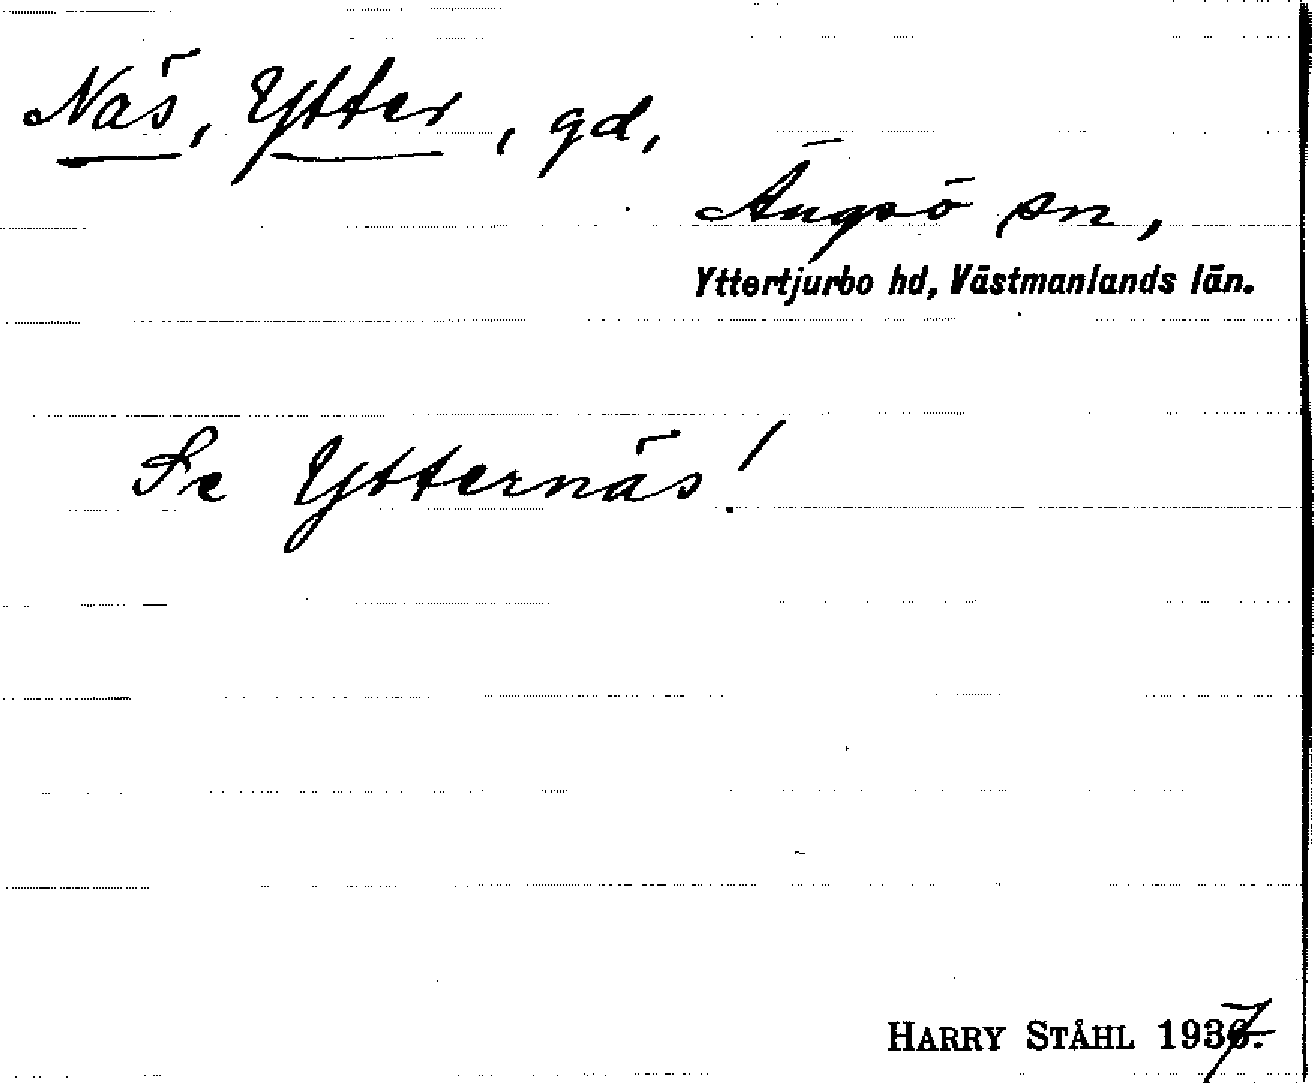 Näs, Ytter, gd,
Ängsö sn,
Yttertjurbo hd, Västmanlands län.
Se Ytternäs!
HARRY STÅHL 1937